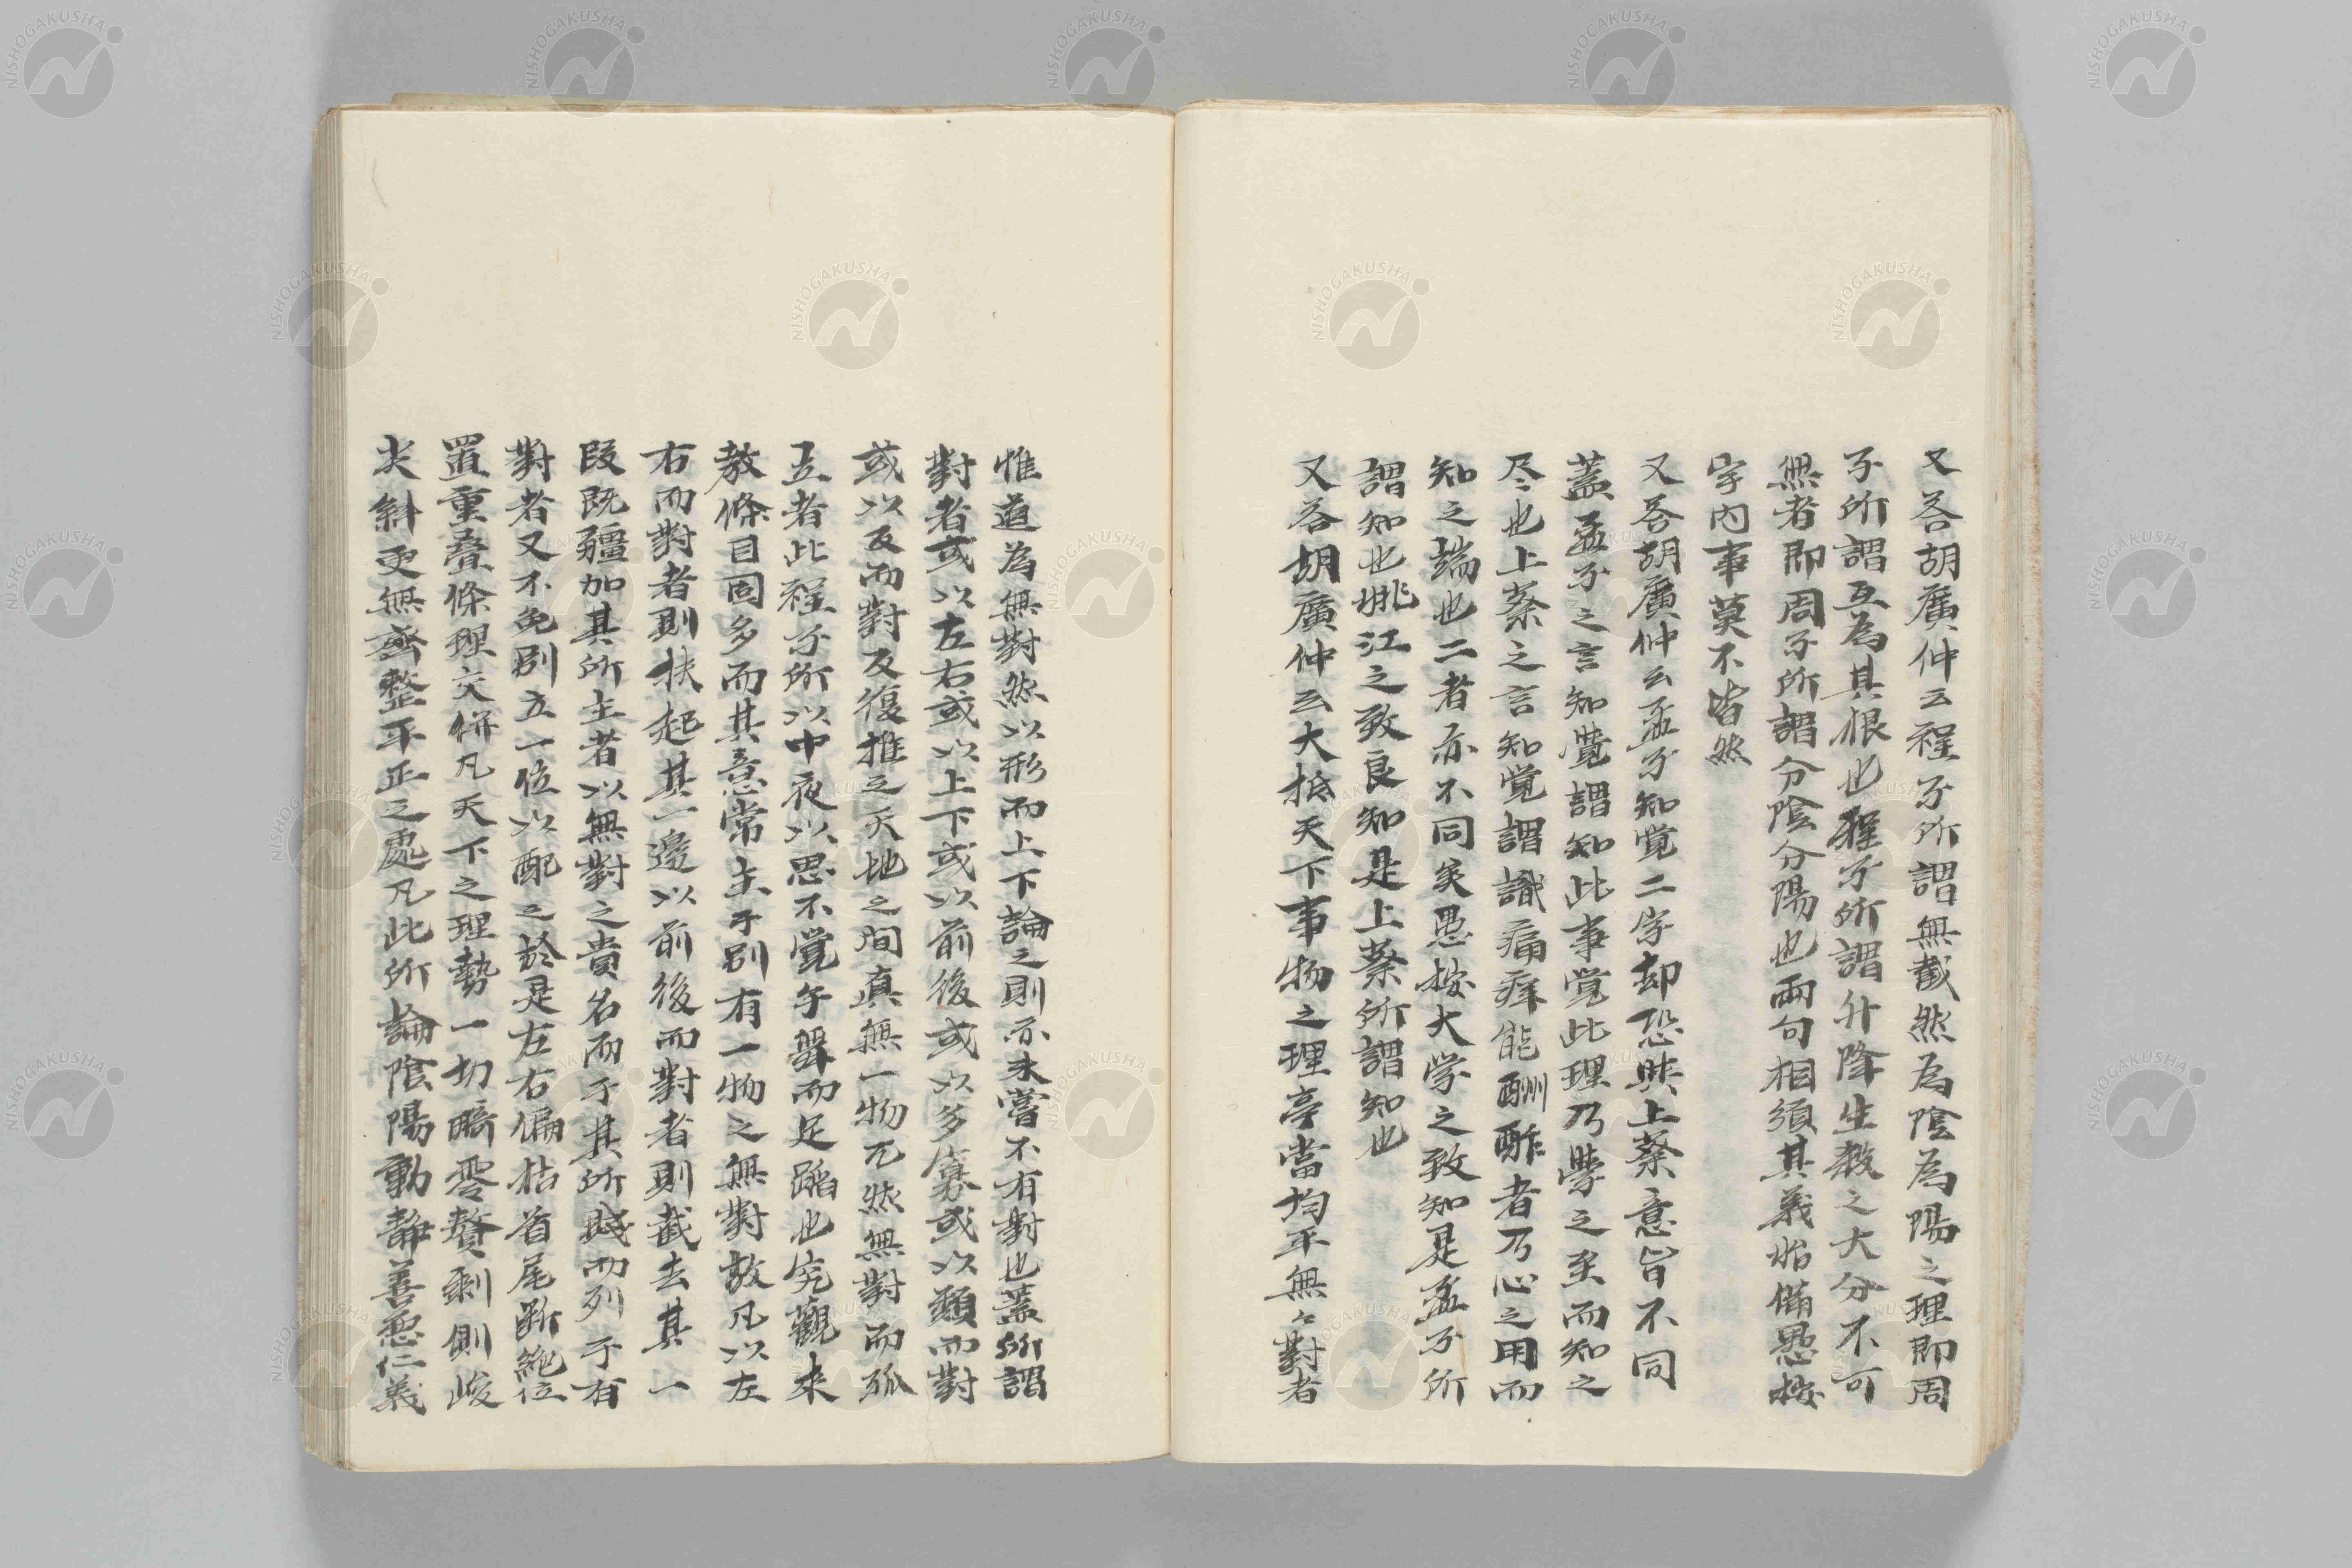 又答胡廣仲云程子所謂無截然為陰為陽之理即周
子所謂互為其根也程子所謂升降生殺之大分不可
無者即周子所謂分陰分陽也兩句相須其義始備愚按
字内事莫不皆然
又答胡廣仲云孟子知覚二字却恐與上蔡意旨不同
蓋孟子之言知覚謂知此事覚此理乃學之至而知之
尽也上蔡之言知覚謂識痛痒能酬酢者乃心之用而
知之端也二者亦不同矣愚按大學之致知是孟子所
謂知也姚江之致良知是上蔡所謂知也
又答胡廣仲云大抵天下事物之理亭當均平無々對者
惟道為無對然以形而上下論之則亦未嘗不有對也蓋所謂
對者或以左右或以上下或以前後或以多寡或以類而對
或以反而對反復推之天地之間真無一物兀然無對而孤
立者此程子所以中夜以思不覚手舞而足蹈也究觀来
教條目固多而其意常主于別有一物之無對故凡以左
右而對者則扶起其一邊以前後而對者則截去其一
段既彊加其所主者以無對之貴名而于其所賤而列于有
對者又不免別立一位以配之於是左右偏枯首尾断絶位
置重疊條理交併凡天下之理勢一切畸零贅剰側峻
尖斜更無齊整平正之處凡此所論陰陽動静善悪仁義
NISHOGAKUSHA